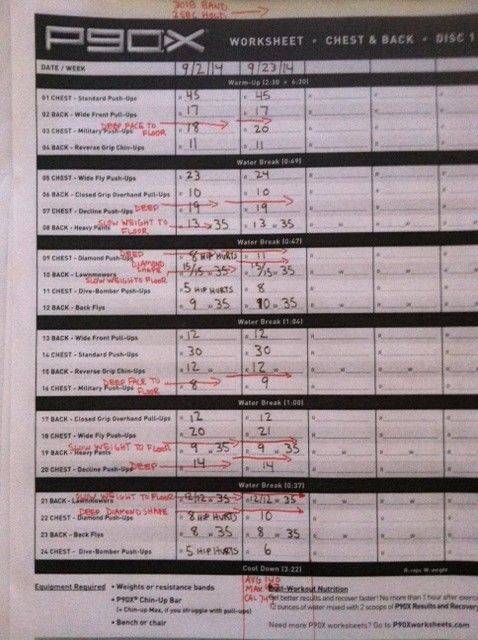 30LB BAND
25BC HOLD
P90X WORKSHEET - CHEST & BACK - DISC 1
DATE / WEEK 9/2/14 9/23/14
Warm-Up (2:30 + 6:30)
01 CHEST - Standard Push-Ups R 45 R 45 R R R
02 BACK - Wide Front Pull-Ups R 17 R 17 R R R
DEEP FACE TO FLOOR
03 CHEST - Military Push-Ups R 18 R 20 R R R
04 BACK - Reverse Grip Chin-Ups R 11 R 11 R R R
Water Break (0:49)
05 CHEST - Wide Fly Push-Ups R 23 R 24 R R R
06 BACK - Closed Grip Overhand Pull-Ups R 10 R 10 R R R
07 CHEST - Decline Push-Ups DEEP R 19 R 19 R R R
SLOW WEIGHT TO FLOOR
08 BACK - Heavy Pants R 13 W 35 R 13 W 35 R W R W R W
Water Break (0:47)
09 CHEST - Diamond Push-Ups DEEP DIAMOND SHAPE R 8 HIP HURTS R 11 R R R
10 BACK - Lawnmowers R 15/15 W 35 R 15/15 W 35 R W R W R W
SLOW WEIGHT TO FLOOR
11 CHEST - Dive-Bomber Push-Ups R 5 HIP HURTS R 8 R R R
12 BACK - Back Flys R 9 W 35 R 10 W 35 R W R W R W
Water Break (1:04)
13 BACK - Wide Front Pull-Ups R 12 R 12 R R R
14 CHEST - Standard Push-Ups R 30 R 30 R R R
15 BACK - Reverse Grip Chin-Ups R 12 W R 12 W R W R W R W
DEEP FACE TO FLOOR
16 CHEST - Military Push-Ups R 8 R 9 R R R
Water Break (1:00)
17 BACK - Closed Grip Overhand Pull-Ups R 12 R 12 R R R
18 CHEST - Wide Fly Push-Ups R 20 R 21 R R R
SLOW WEIGHT TO FLOOR
19 BACK - Heavy Pants R 9 W 35 R 9 W 35 R W R W R W
20 CHEST - Decline Push-Ups DEEP R 14 R 14 R R R
Water Break (0:37)
SLOW WEIGHT TO FLOOR
21 BACK - Lawnmowers R 12/12 W 35 R 12/12 W 35 R W R W R W
DEEP DIAMOND SHAPE
22 CHEST - Diamond Push-Ups R 8 HIP HURTS R 10 R R R
23 BACK - Back Flys R 8 W 35 R 8 W 35 R W R W R W
24 CHEST - Dive-Bomber Push-Ups R 5 HIP HURTS R 6 R R R
Cool Down (3:22) R=reps W=weight
AVG 140
MAX
CAL
Equipment Required • Weights or resistance bands
• P90X® Chin-Up Bar
(+ Chin-up Max, if you struggle with pull-ups)
• Bench or chair
Post-Workout Nutrition
Get better results and recover faster! No more than 1 hour after
12 ounces of water mixed with 2 scoops of P90X Results and Recovery
Need more P90X worksheets? Go to P90Xworksheets.com